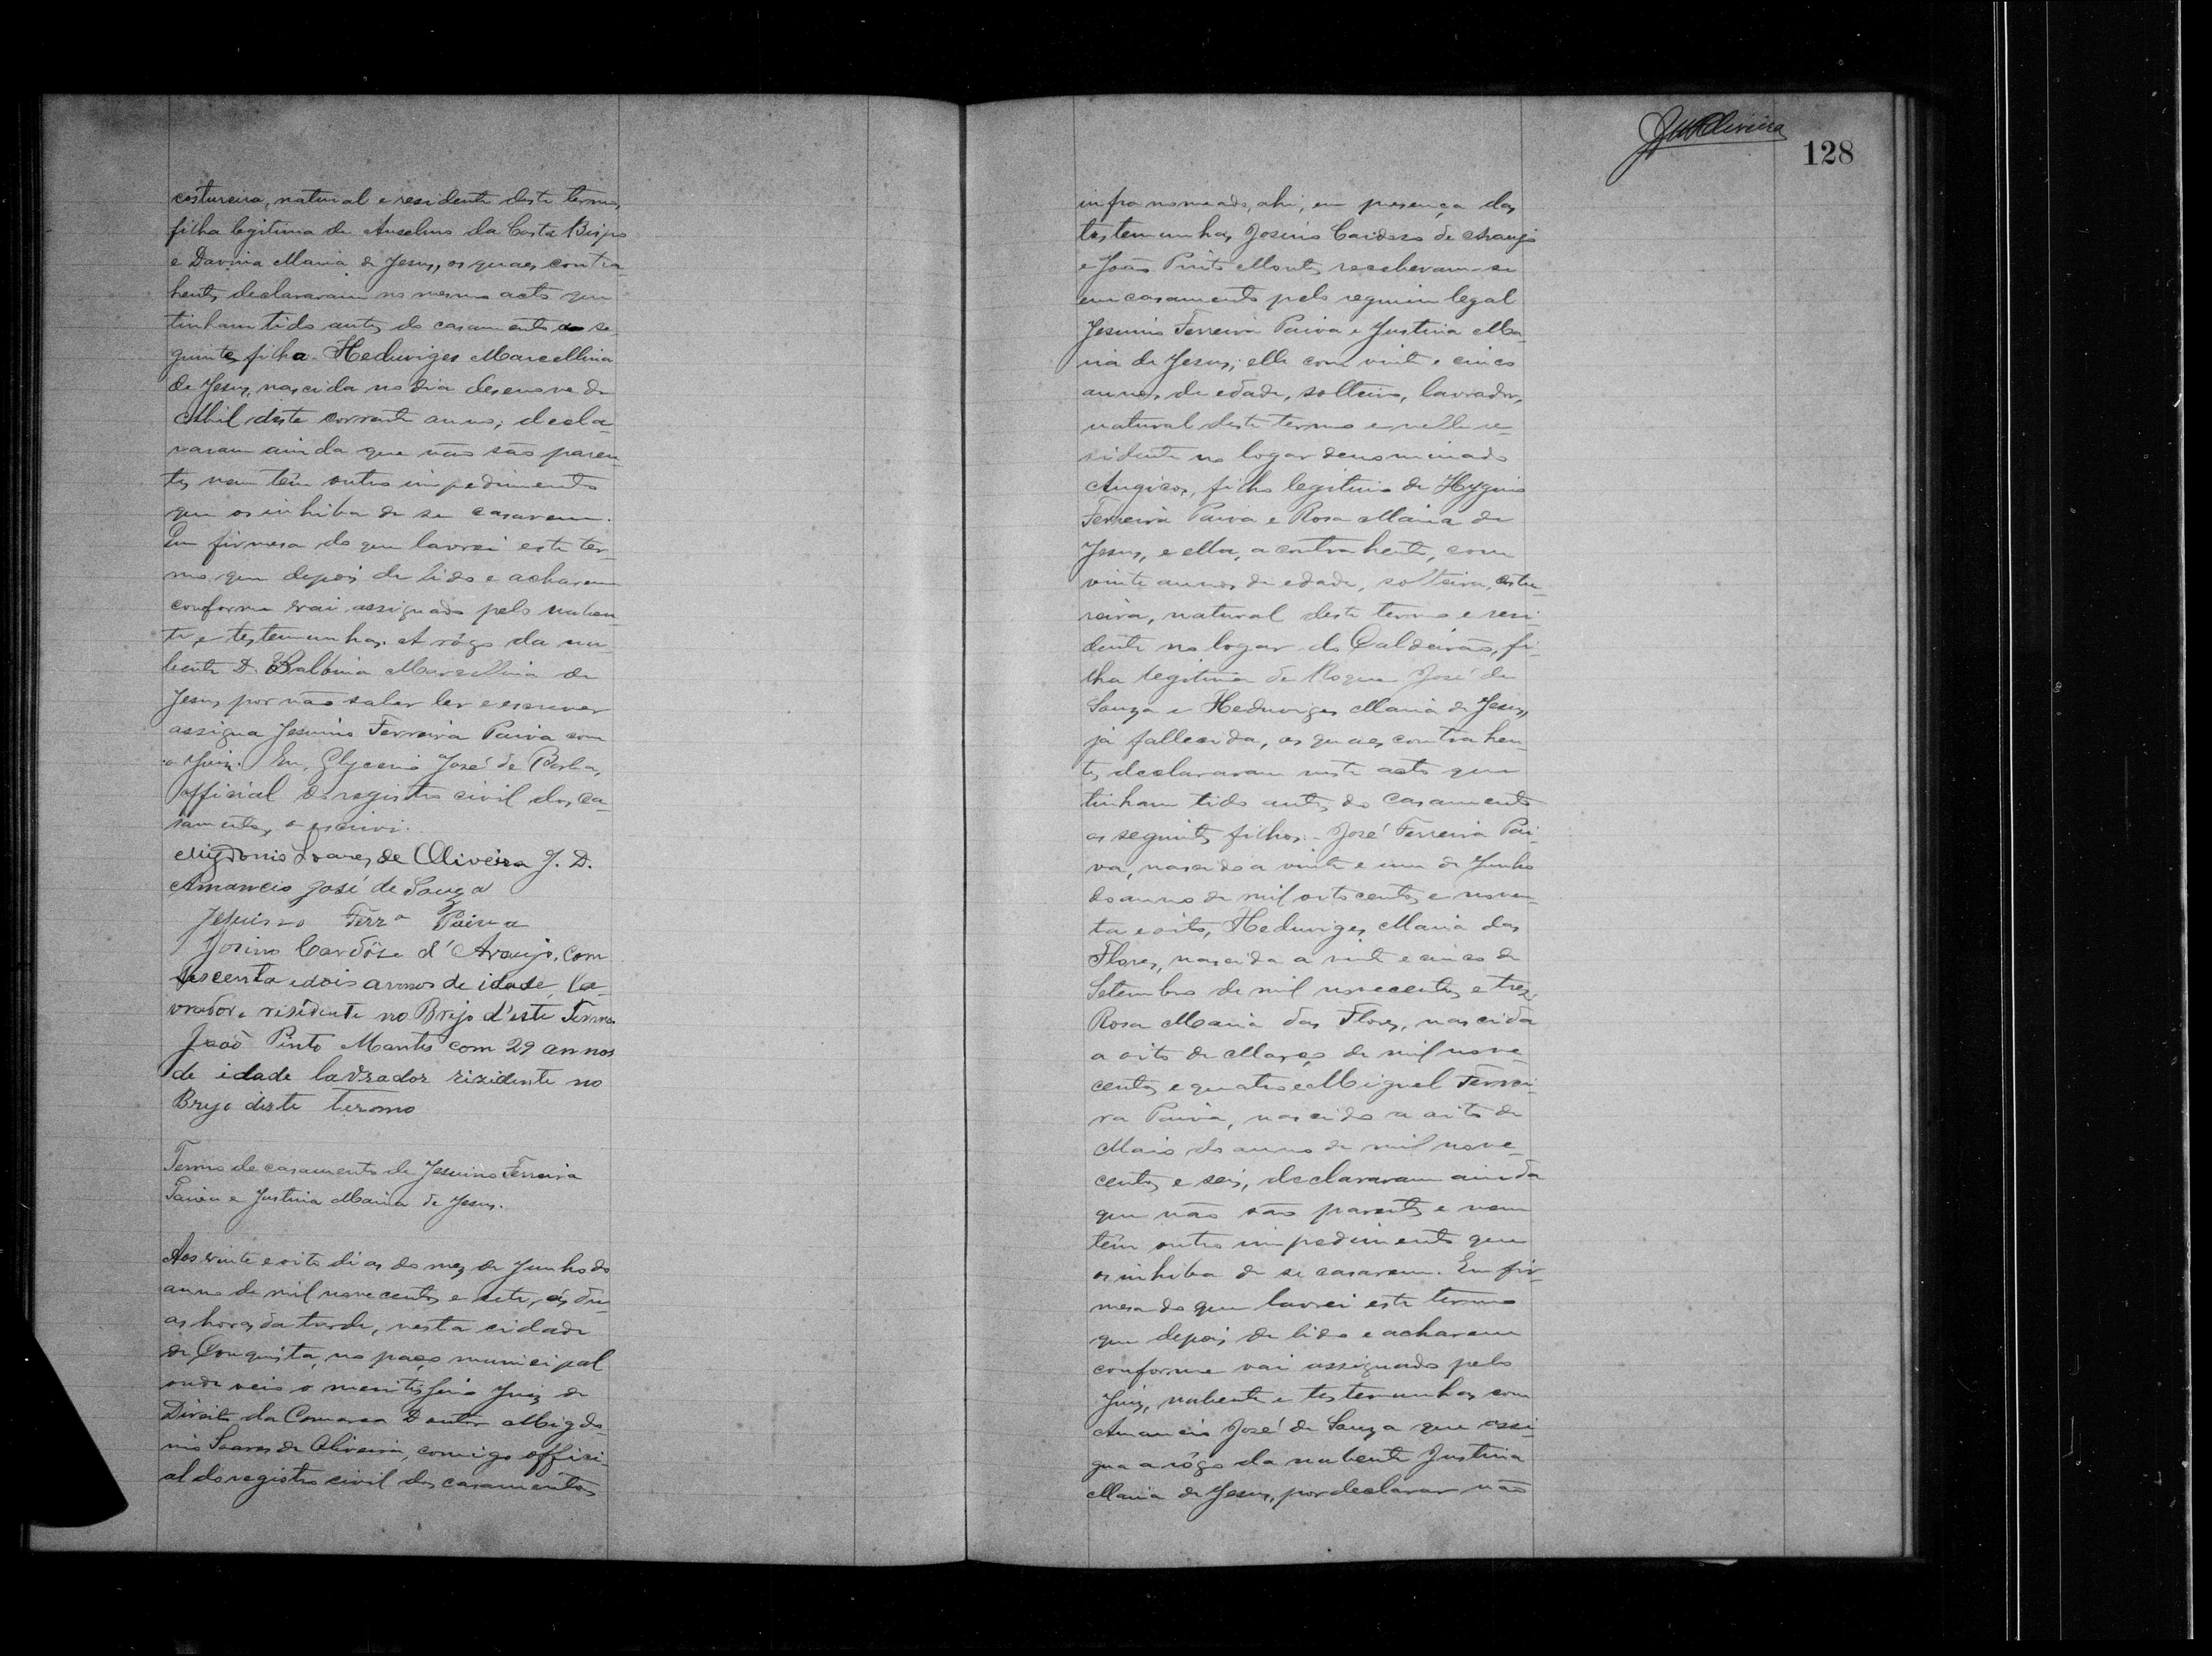 costureira, natural e residente deste termo,
filha legitima de Anselmo da Costa Bispo
e Davina Maria de Jesus, os quaes contra-
hentes declararam no mesmo acto que
tinham tido antes do casamento a se-
guinte filha. Heduviges Marcellina
de Jesus, nascida no dia desenove de
Abril deste corrente anno; decla-
raram ainda que não são paren-
tes nem têm outro impedimento
que os inhiba de se casarem.
Em firmesa do que lavrei este ter-
mo que depois de lido e acharem
conforme vai assignado pelo nuben-
te, e testemunhas. A rôgo da nu-
bente D. Balbina Marcellina de
Jesus por não saber ler e escrever
assigna Jesuino Ferreira Paiva com
o Juiz. Eu, Glycerio José de
official do registro civil dos ca-
samentos o escrevi.
Migdonio Soares de Oliveira J. D.
Amancio José de Souza
Jesuino Ferrª Paiva
Josino Cardôso d'Araujo, com
sescenta e dois annos de idade, la-
vrador e residente no Brejo d'este Termo.
João Pinto Montes com 29 annos
de idade lavrador rizidente no
Brejo deste termo
Termo de casamento de Jesuino Ferreira
Paiva e Justina Maria de Jesus.
Aos vinte e oito dias do mez de Junho do
anno de mil novecentos e sete, ás du-
as horas da tarde, nesta cidade
de Conquista, no paço municipal
onde veio o meritissimo Juiz de
Direito da Comarca Doutor Migdo-
nio Soares de Oliveira, comigo offici-
al do registro civil dos casamentos
128
infra nomeado, ahi, em presença das
testemunhas, Josino Cardoso de Araujo
e João Pinto Montes, receberam-se
em casamento pelo regimen legal
Jesuino Ferreira Paiva e Justina Ma-
ria de Jesus; elle com vinte e cinco
annos de edade, solteiro, lavrador,
natural deste termo e nelle re-
sidente no logar denominado
Angicos, filho legitimo de Hygino
Ferreira Paiva e Rosa Maria de
Jesus, e ella, a contrahente, com
vinte annos de edade, solteira, costu-
reira, natural deste termo e resi-
dente no logar do Caldeirão, fi-
lha legitima de Roque José de
Souza e Heduviges Maria de Jesus,
já fallecida, os quaes contrahen-
tes declararam neste acto que
tinham tido antes do casamento
os seguintes filhos:- José Ferreira Pai-
va, nascido a vinte e um de Junho
do anno de mil oito centos e noven-
ta e oito, Heduviges Maria das
Flores, nascida a vinte e cinco de
Setembro de mil novecentos e trez;
Rosa Maria das Flores, nascida
a oito de Março de mil nove-
centos e quatro e Miguel Ferrei-
ra Paiva, nascido a oito de
Maio do anno de mil nove-
centos e seis, declararam ainda
que não são parentes e nem
têm outro impedimento que
os inhiba de se casarem. Em fir-
mesa do que lavrei este termo
que depois de lido e acharem
conforme vai assignado pelo
Juiz, nubente e testemunhas com
Amancio José de Souza que assi-
gna a rôgo da nubente Justina
Maria de Jesus, por declarar não